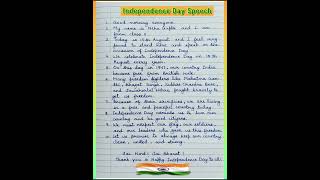 Independence Day Speech
1. Good morning everyone.
2. My name is Neha Gupta and I am
from class 6
3. Today is 15th August and I feel very
proud to stand here and speak on the
occasion of Independence Day.
4. We celebrate Independence Day on 15th
August every year.
5. On this day in 1947, our country India
became free from British rule.
6. Many freedom fighters like Mahatma Gandhi
Ji, Bhagat Singh, Subhas Chandra Bose,
and Jawaharlal Nehru fought bravely to
get us freedom.
7. Because of their sacrifices, we are living
in a free and peaceful country today.
8. Independence Day reminds us to love our
country and be good citizens.
9. We must respect our flag, our soldiers,
and our leaders who gave us this freedom.
10. Let us promise to always keep our country
clean, united and strong.
Jai Hind! Jai Bharat!
Thank you & Happy Independence Day to all.